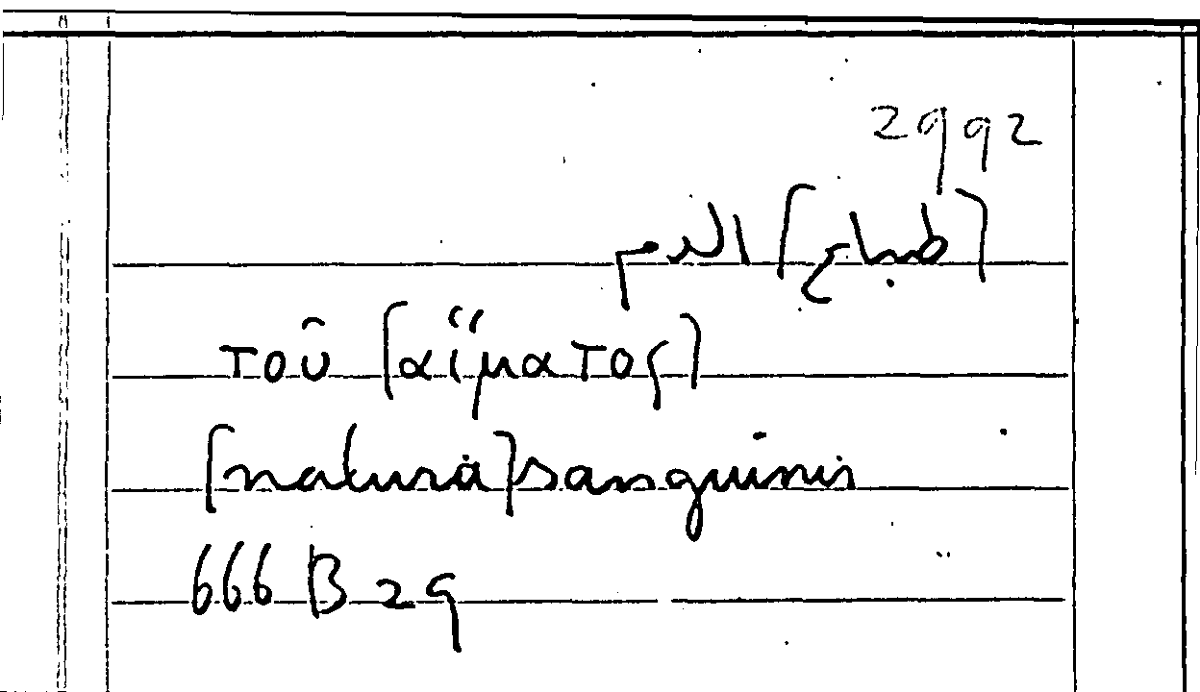 2992
[طباع] الدم
τοῦ [αἵματος]
[natura] sanguinis
666 B 29